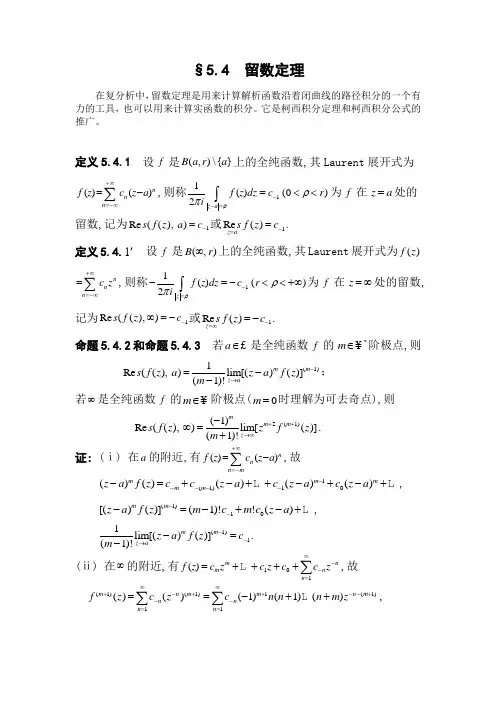 §5.4 留数定理
在复分析中,留数定理是用来计算解析函数沿着闭曲线的路径积分的一个有
力的工具,也可以用来计算实函数的积分。它是柯西积分定理和柯西积分公式的
推广。
定义5.4.1 设 f 是 B(a, r) \ {a} 上的全纯函数,其Laurent展开式为
f(z)=∑_{n=−∞}^{+∞} c_n(z−a)^n ,则称 1/(2πi) ∫_{|z−a|=ρ} f(z)dz = c_{−1} (0 < ρ < r) 为 f 在 z = a 处的
留数,记为 Res(f(z), a) = c_{−1} 或 Res_{z=a} f(z) = c_{−1}.
定义5.4.1′ 设 f 是 B(∞, r) 上的全纯函数,其Laurent展开式为 f(z)
=∑_{n=−∞}^{+∞} c_n z^n ,则称 − 1/(2πi) ∫_{|z|=ρ} f(z)dz = −c_{−1} (r < ρ < +∞) 为 f 在 z = ∞ 处的留数,
记为 Res(f(z), ∞) = −c_{−1} 或 Res_{z=∞} f(z) = −c_{−1}.
命题5.4.2和命题5.4.3 若 a∈£ 是全纯函数 f 的 m∈¥* 阶极点,则
Res(f(z), a) = 1/(m−1)! lim_{z→a} [(z−a)^m f(z)]^{(m−1)};
若 ∞ 是全纯函数 f 的 m∈¥ 阶极点(m = 0 时理解为可去奇点),则
Res(f(z), ∞) = (−1)^m/(m+1)! lim_{z→∞} [z^{m+2} f^{(m+1)}(z)].
证: (ⅰ) 在 a 的附近,有 f(z)=∑_{n=−m}^{+∞} c_n(z−a)^n ,故
(z−a)^m f(z) = c_{−m} + c_{−(m−1)}(z−a) + L + c_{−1}(z−a)^{m−1} + c_0(z−a)^m + L ,
[(z−a)^m f(z)]^{(m−1)} = (m−1)!c_{−1} + m!c_0(z−a) + L ,
1/(m−1)! lim_{z→a} [(z−a)^m f(z)]^{(m−1)} = c_{−1}.
(ⅱ) 在 ∞ 的附近,有 f(z) = c_m z^m + L + c_1 z + c_0 + ∑_{n=1}^{∞} c_{−n} z^{−n} ,故
f^{(m+1)}(z) = ∑_{n=1}^{∞} c_{−n}(z^{−n})^{(m+1)} = ∑_{n=1}^{∞} c_{−n}(−1)^{m+1} n(n+1) L (n+m) z^{−n−(m+1)} ,